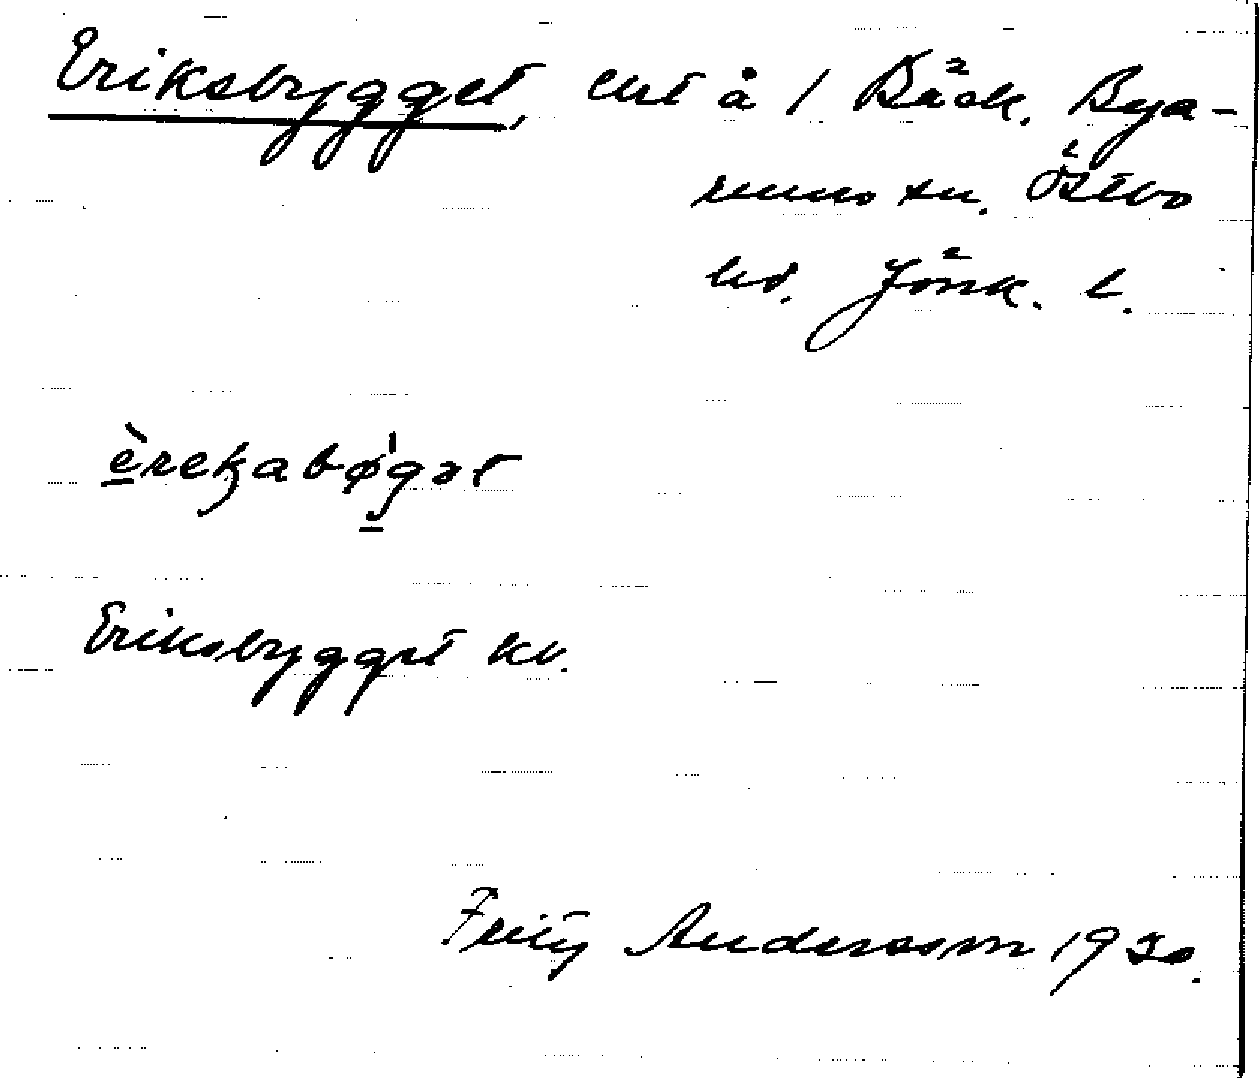 Eriksbygget, ent å 1 Bäck. Bya-
rums sn. Östbo
hd. Jönk. l.
Eriksbygget kv.
Fritz Andersson 1930.